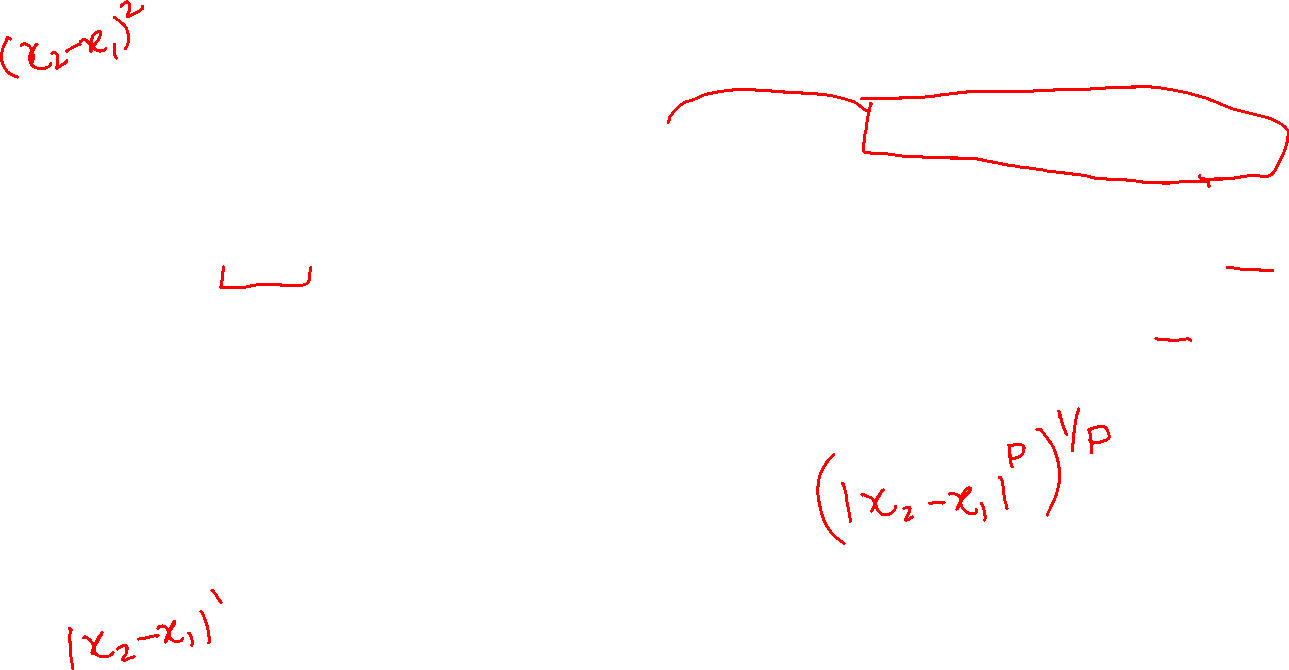 (x₂-x₁)²
(|x₂-x₁|ᴾ)^1/P
|x₂-x₁|¹